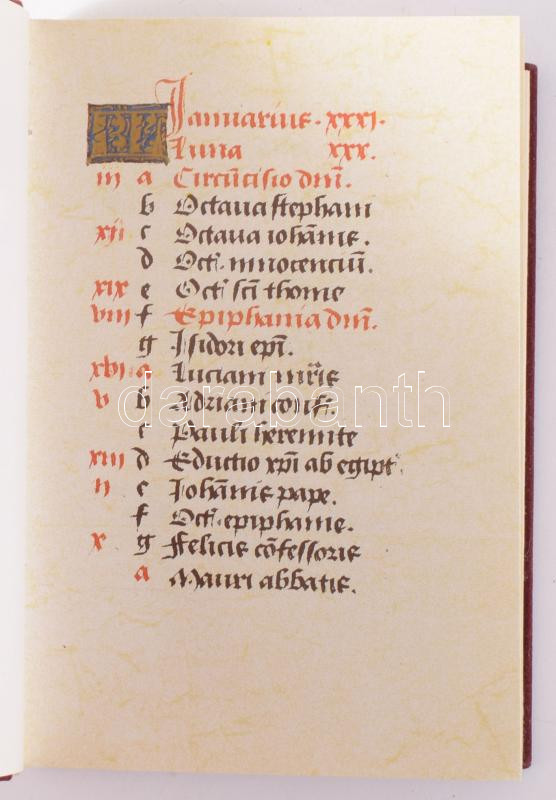 KL Ianuarius. xxxi.
Luna xxx.
iii a Circūcisio dn̄i.
b Octaua stephani
xi c Octaua iohānis.
d Oct. innocenciū.
xix e Oct' sc̄i thome
viii f Epiphania dn̄i.
g Isidori ep̄i.
xvi a Luciani mr̄is
v b Adriani conf.
c Pauli heremite
xiii d Eductio xp̄i ab egipt'
ii e Iohānis pape.
f Oct. epiphanie.
x g Felicis cōfessoris
a Mauri abbatis.
darabanth